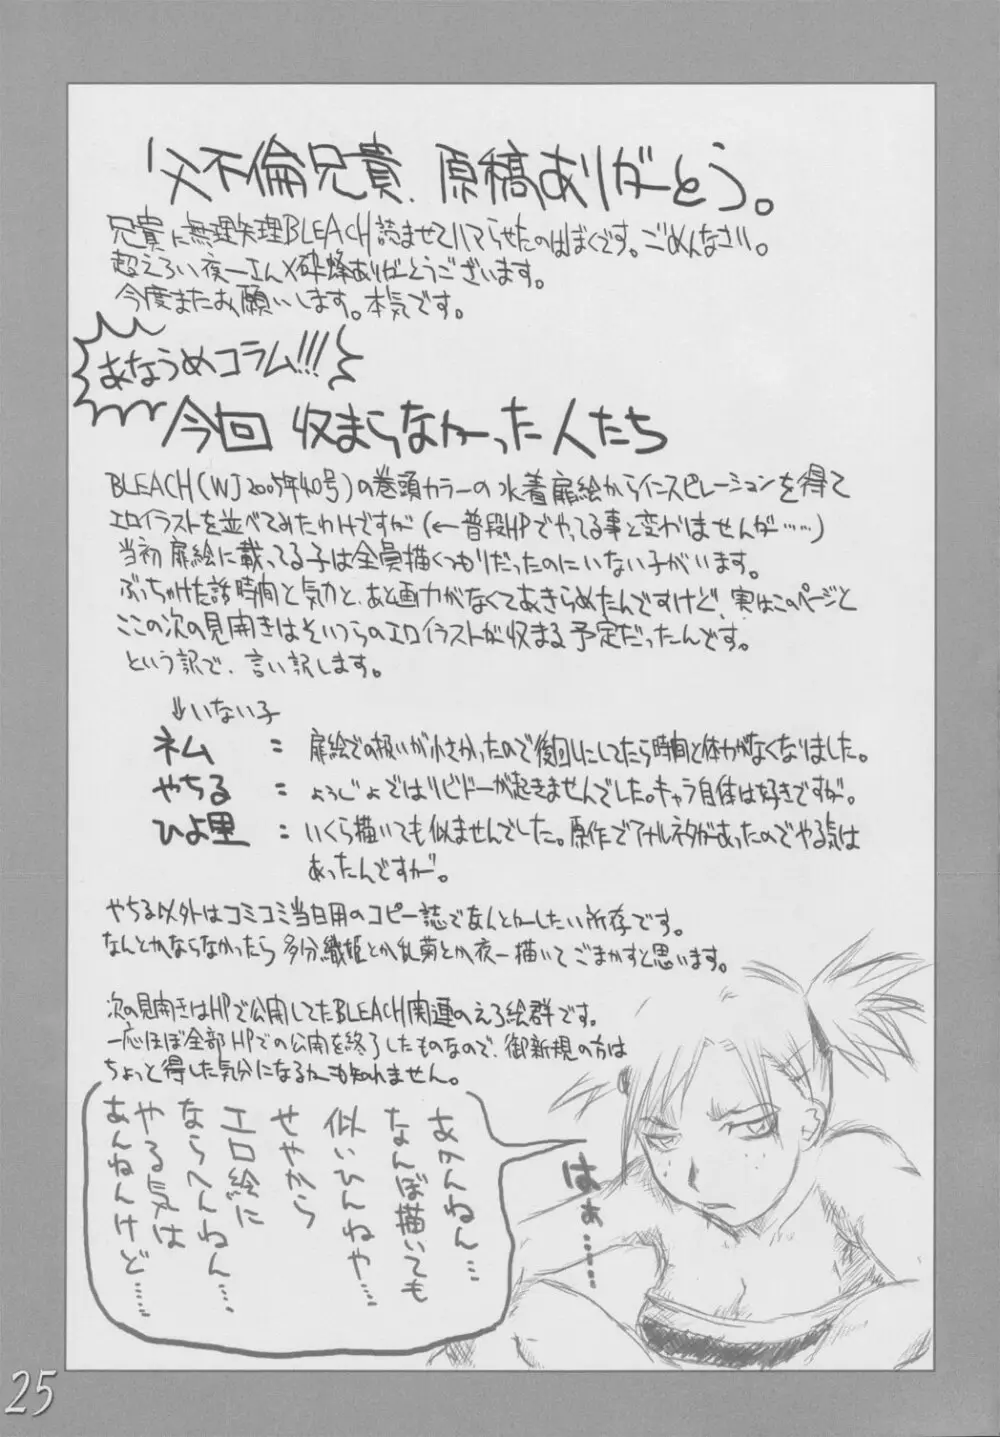 父不倫兄貴、原稿ありがとう。
兄貴に無理矢理BLEACH読ませてハマらせたのはぼくです。ごめんなさい。
超えろい夜一さん×砕蜂ありがとうございます。
今度またお願いします。本気です。
あなうめコラム!!!
今回 収まらなかった人たち
BLEACH(WJ 2005年40号)の巻頭カラーの水着扉絵からインスピレーションを得て
エロイラストを並べてみたわけですが(←普段HPでやってる事と変わりませんが……)
当初扉絵に載ってる子は全員描くつもりだったのにいない子がいます。
ぶっちゃけた話時間と気力と、あと画力がなくてあきらめたんですけど、実はこのページと
ここの次の見開きはそいつらのエロイラストが収まる予定だったんです。
という訳で、言い訳します。
↓いない子
ネム : 扉絵での扱いが小さかったので後回しにしてたら時間と体力がなくなりました。
やちる : ようじょではリビドーが起きませんでした。キャラ自体は好きですが。
ひよ里 : いくら描いても似ませんでした。原作でアナルネタがあったのでやる気は
あったんですが。
やちる以外はコミコミ当日用のコピー誌でなんとかしたい所存です。
なんとかならなかったら多分織姫とか乱菊とか夜一描いてごまかすと思います。
次の見開きはHPで公開してたBLEACH関連のえろ絵群です。
一応ほぼ全部HPでの公開を終了したものなので、御新規の方は
ちょっと得した気分になるかも知れません。
あかんねん…
なんぼ描いても
似いひんねや…
せやから
エロ絵に
ならへんねん…、
やる気は
あんねんけど……
はぁ……
25